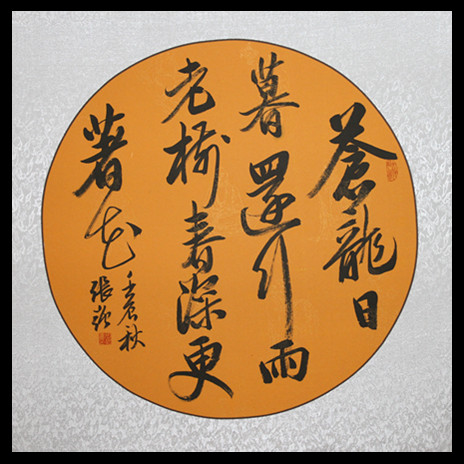 蒼龍日
暮還行雨
老樹春深更
著花
壬辰秋
張